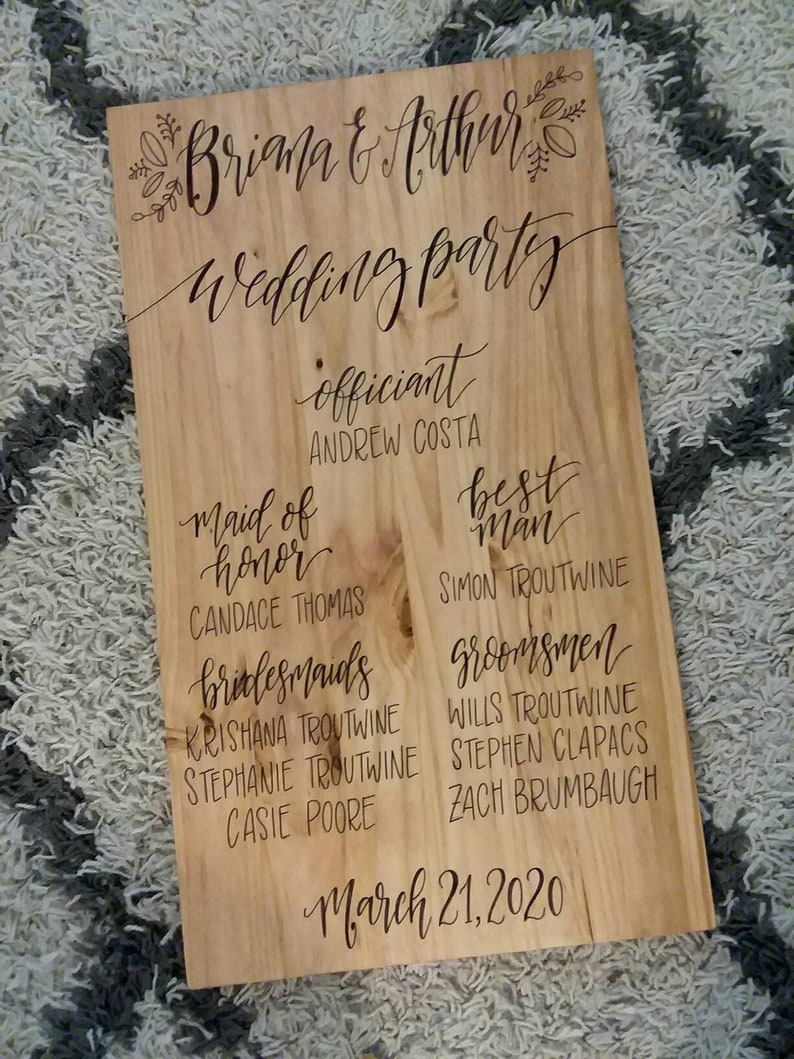 Briana & Arthur
wedding party
officiant
ANDREW COSTA
maid of
honor
CANDACE THOMAS
best
man
SIMON TROUTWINE
bridesmaids
KRISHANA TROUTWINE
STEPHANIE TROUTWINE
CASIE POORE
groomsmen
WILLS TROUTWINE
STEPHEN CLAPACS
ZACH BRUMBAUGH
March 21, 2020